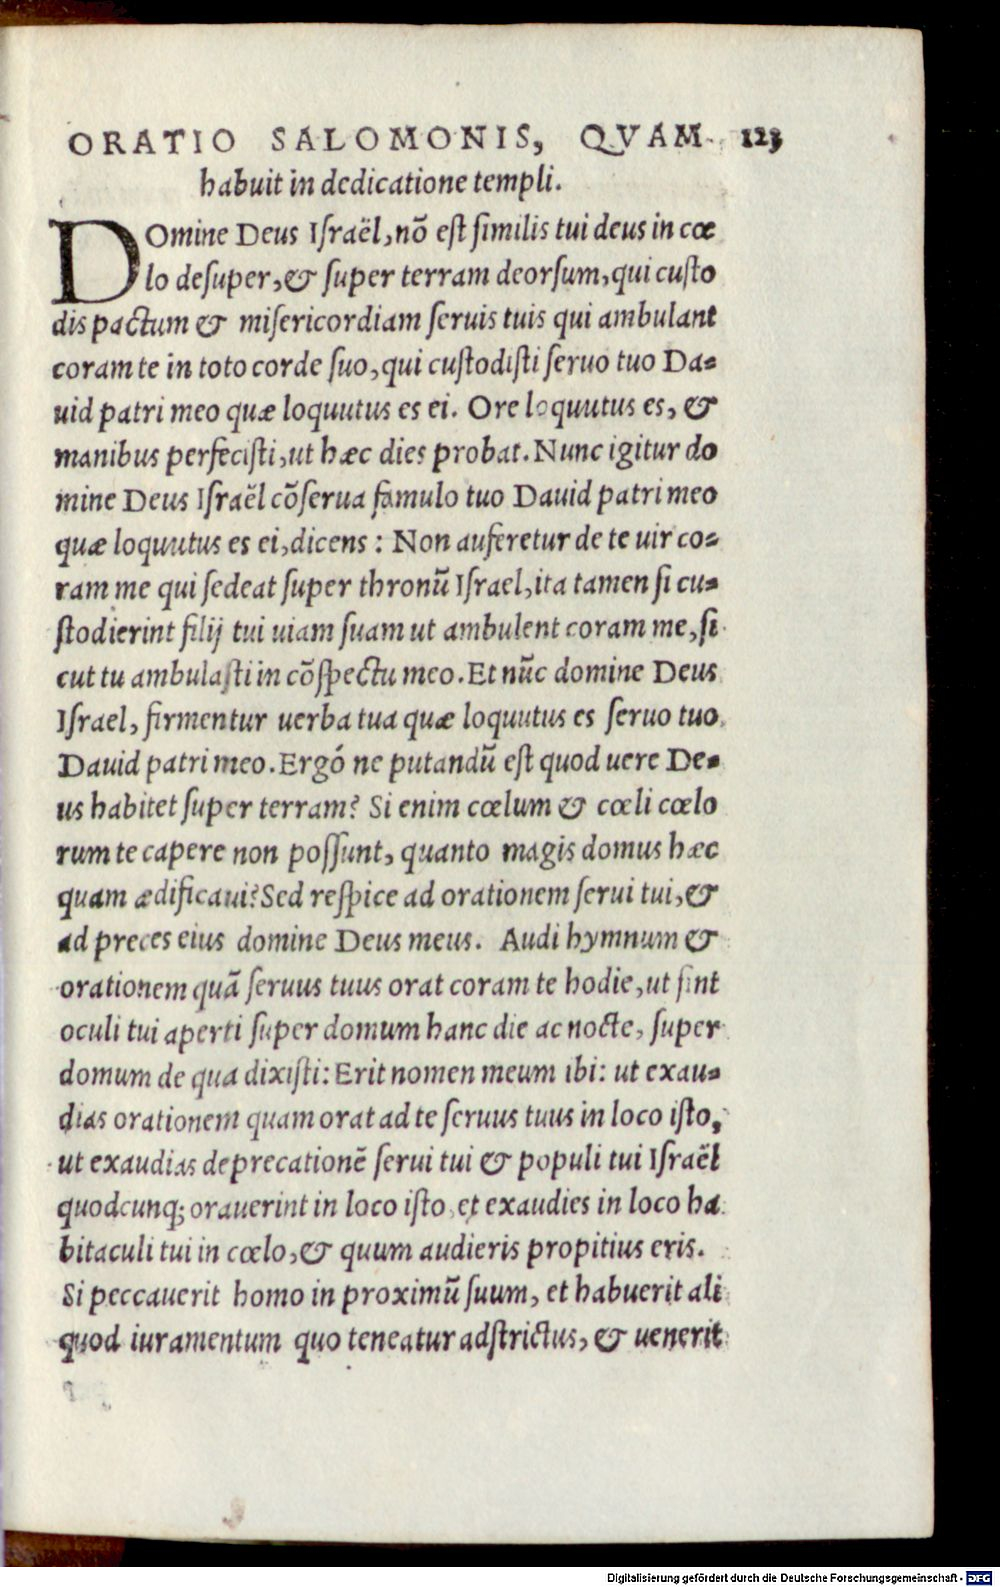 ORATIO SALOMONIS, QVAM 123
habuit in dedicatione templi.
DOmine Deus Iſraël, nō eſt ſimilis tui deus in cœ
lo deſuper, & ſuper terram deorſum, qui cuſto
dis pactum & miſericordiam ſeruis tuis qui ambulant
coram te in toto corde ſuo, qui cuſtodiſti ſeruo tuo Da-
uid patri meo quæ loquutus es ei. Ore loquutus es, &
manibus perfeciſti, ut hæc dies probat. Nunc igitur do
mine Deus Iſraël cōſerua famulo tuo Dauid patri meo
quæ loquutus es ei, dicens: Non auferetur de te uir co-
ram me qui ſedeat ſuper thronū Iſrael, ita tamen ſi cu-
ſtodierint filij tui uiam ſuam ut ambulent coram me, ſi
cut tu ambulaſti in cōſpectu meo. Et nūc domine Deus
Iſrael, firmentur uerba tua quæ loquutus es ſeruo tuo
Dauid patri meo. Ergó ne putandū eſt quod uere De-
us habitet ſuper terram? Si enim cœlum & cœli cœlo
rum te capere non poſſunt, quanto magis domus hæc
quam ædificaui? Sed reſpice ad orationem ſerui tui, &
ad preces eius domine Deus meus. Audi hymnum &
orationem quā ſeruus tuus orat coram te hodie, ut ſint
oculi tui aperti ſuper domum hanc die ac nocte, ſuper
domum de qua dixiſti: Erit nomen meum ibi: ut exau-
dias orationem quam orat ad te ſeruus tuus in loco iſto,
ut exaudias deprecationē ſerui tui & populi tui Iſraël
quodcunq; orauerint in loco iſto, et exaudies in loco ha
bitaculi tui in cœlo, & quum audieris propitius eris.
Si peccauerit homo in proximū ſuum, et habuerit ali
quod iuramentum quo teneatur adſtrictus, & uenerit
Digitalisierung gefördert durch die Deutsche Forschungsgemeinschaft - DFG